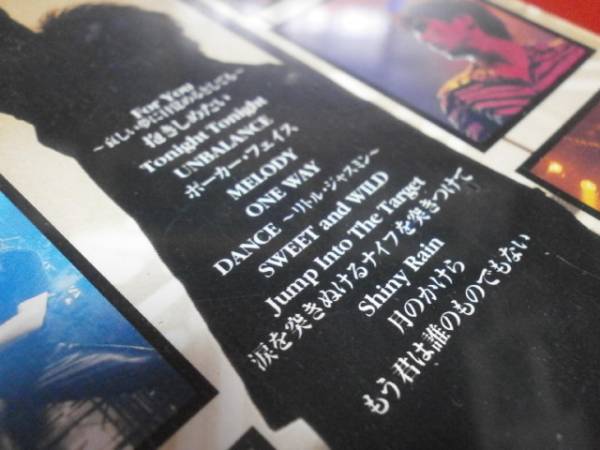 For You
抱きしめたい
Tonight Tonight
UNBALANCE
ポーカー・フェイス
MELODY
ONE WAY
DANCE ～リトル・ジャスミン～
SWEET and WILD
Jump Into The Target
涙を突きぬけるナイフを突きつけて
Shiny Rain
月のかけら
もう君は誰のものでもない